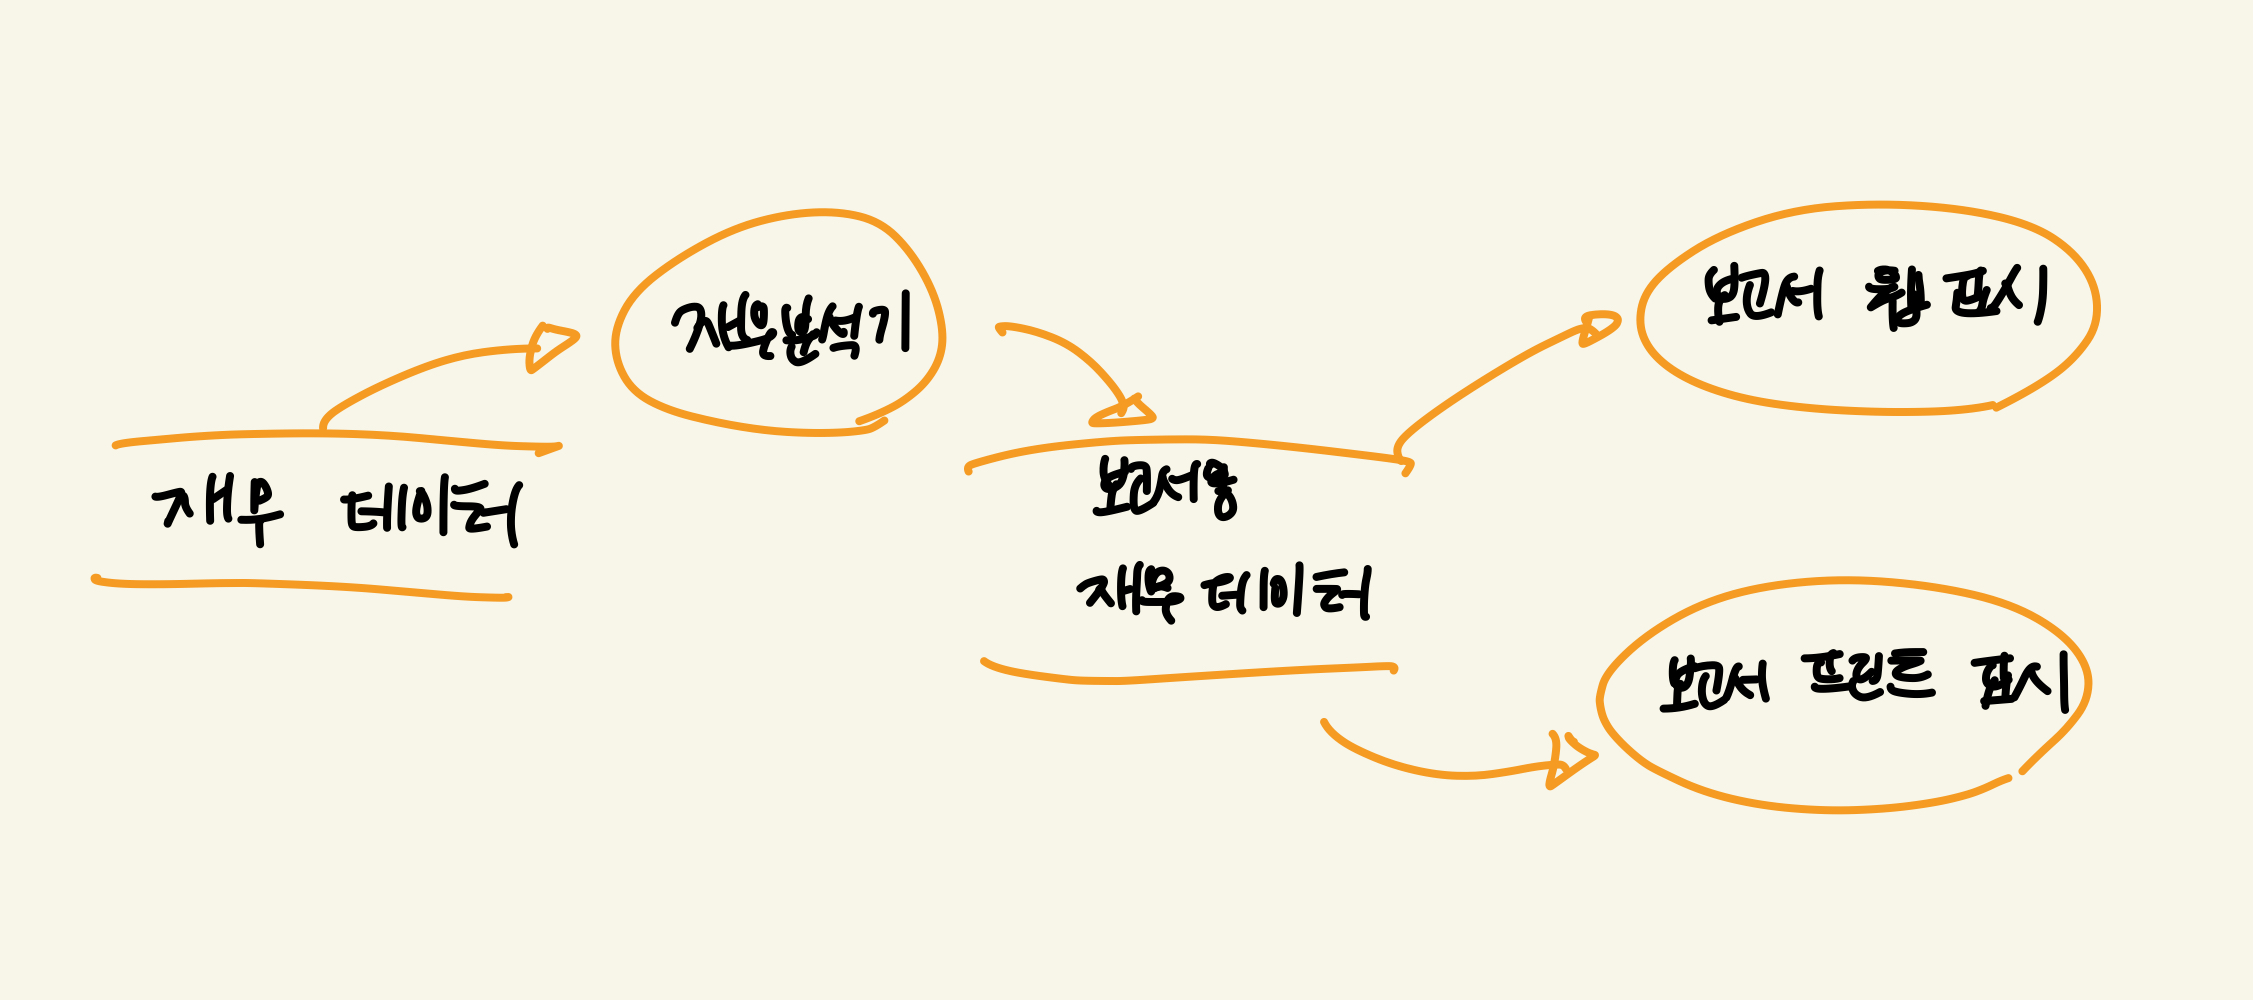 재무 데이터
재무분석기
보고서용
재무 데이터
보고서 웹 표시
보고서 프린트 표시